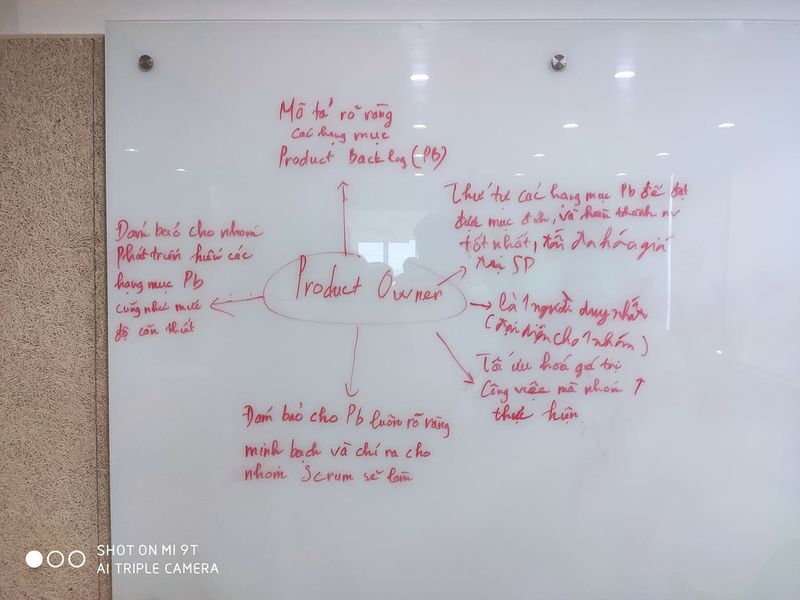 Mô tả rõ ràng
các hạng mục
Product Backlog (Pb)
Thứ tự các hạng mục Pb để đạt
được mục đích, và hoàn thành nv
tốt nhất, tối đa hóa giá
trị SP
Đảm bảo cho nhóm
Phát triển hiểu các
hạng mục Pb
cũng như mức
độ cần thiết
Product Owner
là 1 người duy nhất
(đại diện cho 1 nhóm)
Tối ưu hoá giá trị
Công việc mà nhóm
thực hiện
Đảm bảo cho Pb luôn rõ ràng
minh bạch và chỉ ra cho
nhóm Scrum sẽ làm
SHOT ON MI 9T
AI TRIPLE CAMERA